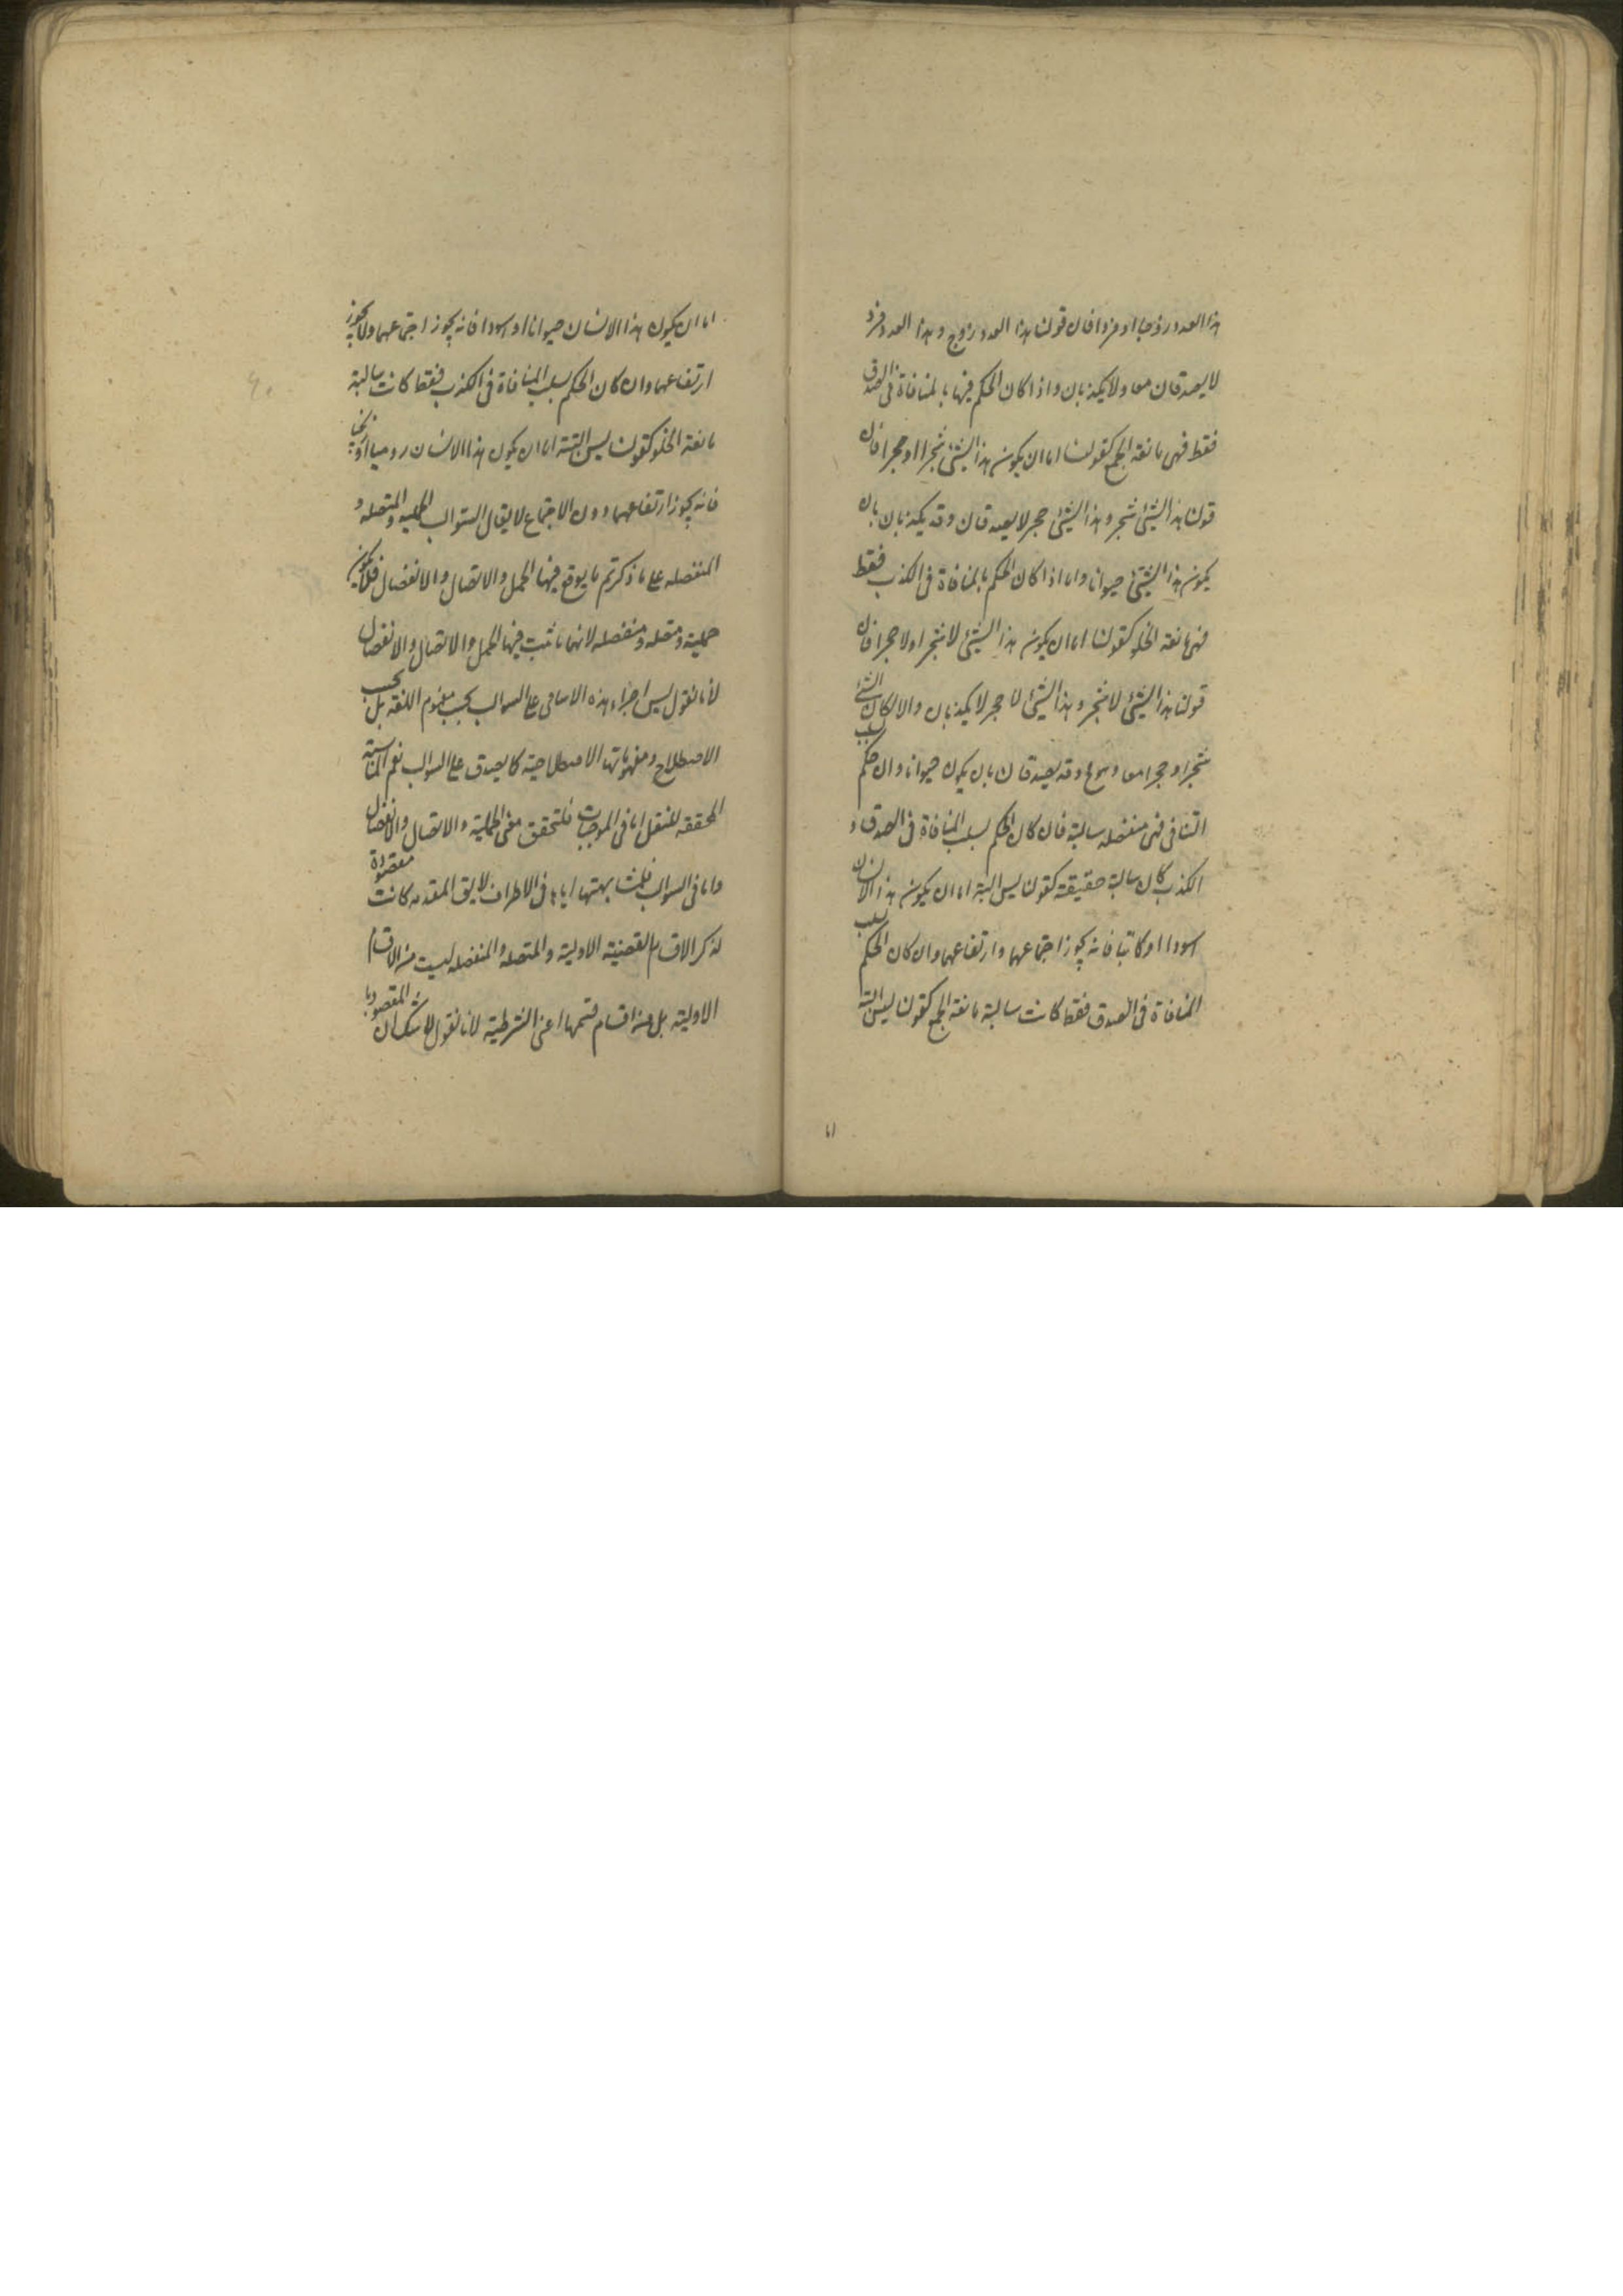 هذا العدد زوجا او فردا فان قولنا هذا العدد زوج و هذا العدد فرد
لا يصدقان معا ولا يكذبان واذا كان الحكم فيها بالمنافاة فى الصدق
فقط فهى مانعة الجمع كقولنا اما ان يكون هذا الشئ شجرا او حجرا فان
قولنا هذا الشئ شجر و هذا الشئ حجر لا يصدقان وقد يكذبان بان
يكون هذا الشئ حيوانا واما اذا كان الحكم بالمنافاة فى الكذب فقط
فهى مانعة الخلو كقولنا اما ان يكون هذا الشئ لا شجرا او لا حجرا فان
قولنا هذا الشئ لا شجر و هذا الشئ لا حجر لا يكذبان والا لكان الشئ
شجرا و حجرا معا و هو مح وقد يصدقان بان يكون حيوانا وان حكم بسلب
التنافى فهى منفصله سالبة فان كان الحكم بسلب المنافاة فى الصدق و
الكذب كان سالبة حقيقة كقولنا ليس البتة اما ان يكون هذا الانسان
اسودا او كاتبا فانه يجوز اجتماعهما وارتفاعهما وان كان الحكم بسلب
المنافاة فى الصدق فقط كانت سالبة مانعة الجمع كقولنا ليس البتة
اما
اما ان يكون هذا الانسان حيوانا او اسودا فانه يجوز اجتماعهما ولا يجوز
ارتفاعهما وان كان الحكم بسلب المنافاة فى الكذب فقط كانت سالبة
مانعة الخلو كقولنا ليس البتة اما ان يكون هذا الانسان روميا او زنجيا
فانه يجوز ارتفاعهما دون الاجتماع لا يقال السوالب الحملية والمتصله و
المنفصله على ما ذكرتم ما يرفع فيها الحمل والاتصال والانفصال فلا يكون
حملية ومتصله ومنفصله لانها ما ثبت فيها الحمل والاتصال والانفصال
لأنا نقول ليس اجراء هذه الاسامى على السوالب بحسب مفهوم اللغة بل بحسب
الاصطلاح ومفهوماتها الاصطلاحية كما يصدق على السوالب نعم المناسبة
المحققه للنقل اما فى الموجبات فلتحقق معنى الحملية والاتصال والانفصال
واما فى السوالب فلمشابهتها اياها فى الاطراف لا يق المقدمه كانت معقودة
لذكر الاقسام القضية الاولية والمتصله والمنفصله ليست من الاقسام
الاولية بل من اقسام قسمها اعنى الشرطية لأنا نقول لا شك ان المقصود با